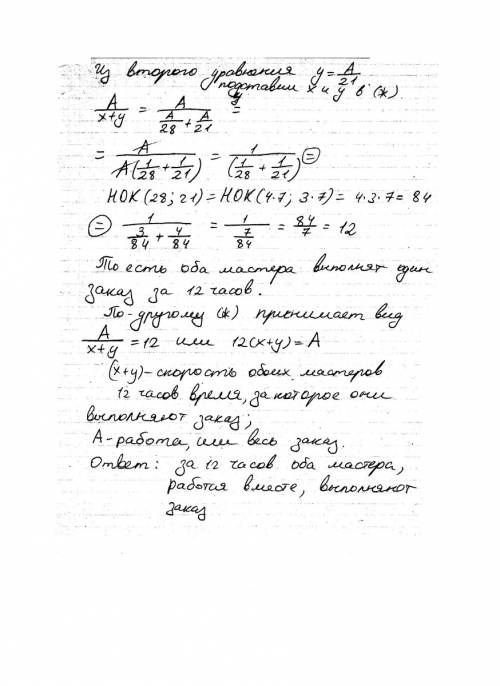 Из второго уравнения y = A/21
подставим x и y в (*).
A/(x+y) = A/(A/28 + A/21) =
= A/(A(1/28 + 1/21)) = 1/(1/28 + 1/21) =
НОК(28; 21) = НОК(4·7; 3·7) = 4·3·7 = 84
= 1/(3/84 + 4/84) = 1/(7/84) = 84/7 = 12
То есть оба мастера выполнят один
заказ за 12 часов.
По-другому (*) принимает вид
A/(x+y) = 12 или 12(x+y) = A
(x+y) - скорость обоих мастеров
12 часов время, за которое они
выполняют заказ;
A - работа, или весь заказ.
Ответ: за 12 часов оба мастера,
работая вместе, выполняют
заказ